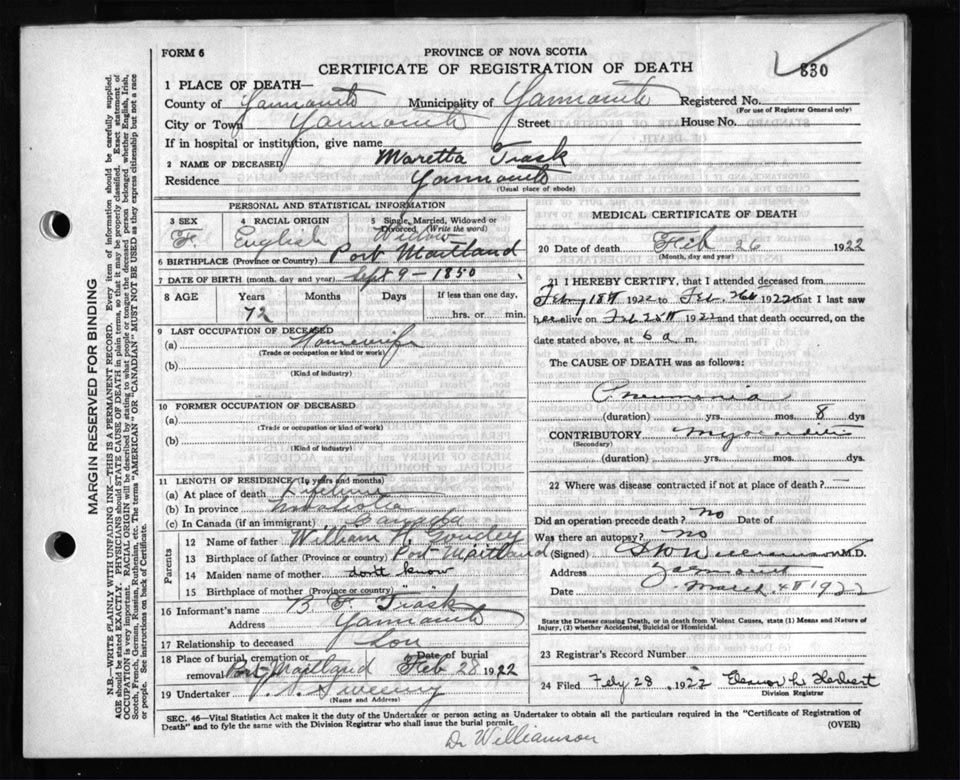 FORM 6
PROVINCE OF NOVA SCOTIA
CERTIFICATE OF REGISTRATION OF DEATH
830
1 PLACE OF DEATH—
County of Yarmouth Municipality of Yarmouth Registered No.
(For use of Registrar General only)
City or Town Yarmouth Street House No.
If in hospital or institution, give name
2 NAME OF DECEASED Maretta Trask
Residence Yarmouth
(Usual place of abode)
PERSONAL AND STATISTICAL INFORMATION
3 SEX 4 RACIAL ORIGIN 5 Single, Married, Widowed or Divorced (Write the word)
F. English Widow
6 BIRTHPLACE (Province or Country) Port Maitland
7 DATE OF BIRTH (month, day and year) Sept 9 - 1850
8 AGE Years Months Days If less than one day,
72 hrs. or min.
9 LAST OCCUPATION OF DECEASED
(a) Housewife
(Trade or occupation or kind or work)
(b)
(Kind of industry)
10 FORMER OCCUPATION OF DECEASED
(a)
(Trade or occupation or kind of work)
(b)
(Kind of industry)
11 LENGTH OF RESIDENCE (In years and months)
(a) At place of death Lifetime
(b) In province
(c) In Canada (if an immigrant) Canada
Parents
12 Name of father William Goudey
13 Birthplace of father (Province or country) Port Maitland
14 Maiden name of mother don't know
15 Birthplace of mother (Province or country)
16 Informant's name B. F. Trask
Address Yarmouth
17 Relationship to deceased Son
18 Place of burial, cremation or removal Port Maitland Date of burial Feb 28 1922
19 Undertaker Sweeny
(Name and Address)
MEDICAL CERTIFICATE OF DEATH
20 Date of death Feb 26 1922
(Month, day and year)
21 I HEREBY CERTIFY, that I attended deceased from
Febry 18th 1922 to Feb. 26th 1922 that I last saw
her alive on Feb 1922 and that death occurred, on the
date stated above, at 6 a m.
The CAUSE OF DEATH was as follows:
Pneumonia
(duration) yrs. mos. 8 dys
CONTRIBUTORY Myocarditis
(Secondary)
(duration) yrs. mos. dys.
22 Where was disease contracted if not at place of death?
Did an operation precede death? no Date of
Was there an autopsy? no
(Signed) Williamson M.D.
Address Yarmouth
Date March 4th 1922
State the Disease causing Death, or in death from Violent Causes, state (1) Means and Nature of Injury, (2) whether Accidental, Suicidal or Homicidal.
23 Registrar's Record Number
24 Filed Feby 28 1922 Eleanor L. Herbert
Division Registrar
SEC. 46—Vital Statistics Act makes it the duty of the Undertaker or person acting as Undertaker to obtain all the particulars required in the "Certificate of Registration of
Death" and to fyle the same with the Division Registrar who shall issue the burial permit. (OVER)
Dr Williamson
MARGIN RESERVED FOR BINDING
N.B—WRITE PLAINLY WITH UNFADING INK—THIS IS A PERMANENT RECORD. Every item of information should be carefully supplied.
AGE should be stated EXACTLY. PHYSICIANS should STATE CAUSE OF DEATH in plain terms, so that it may be properly classified. Exact statement of
OCCUPATION is very important. RACIAL ORIGIN will be described by stating to what people or tongue the deceased person belonged whether English, Irish,
Scotch, French, German, Russian, Ruthenian, etc. The terms "AMERICAN" OR "CANADIAN" MUST NOT BE USED as they express citizenship but not a race
or people. See instructions on back of Certificate.